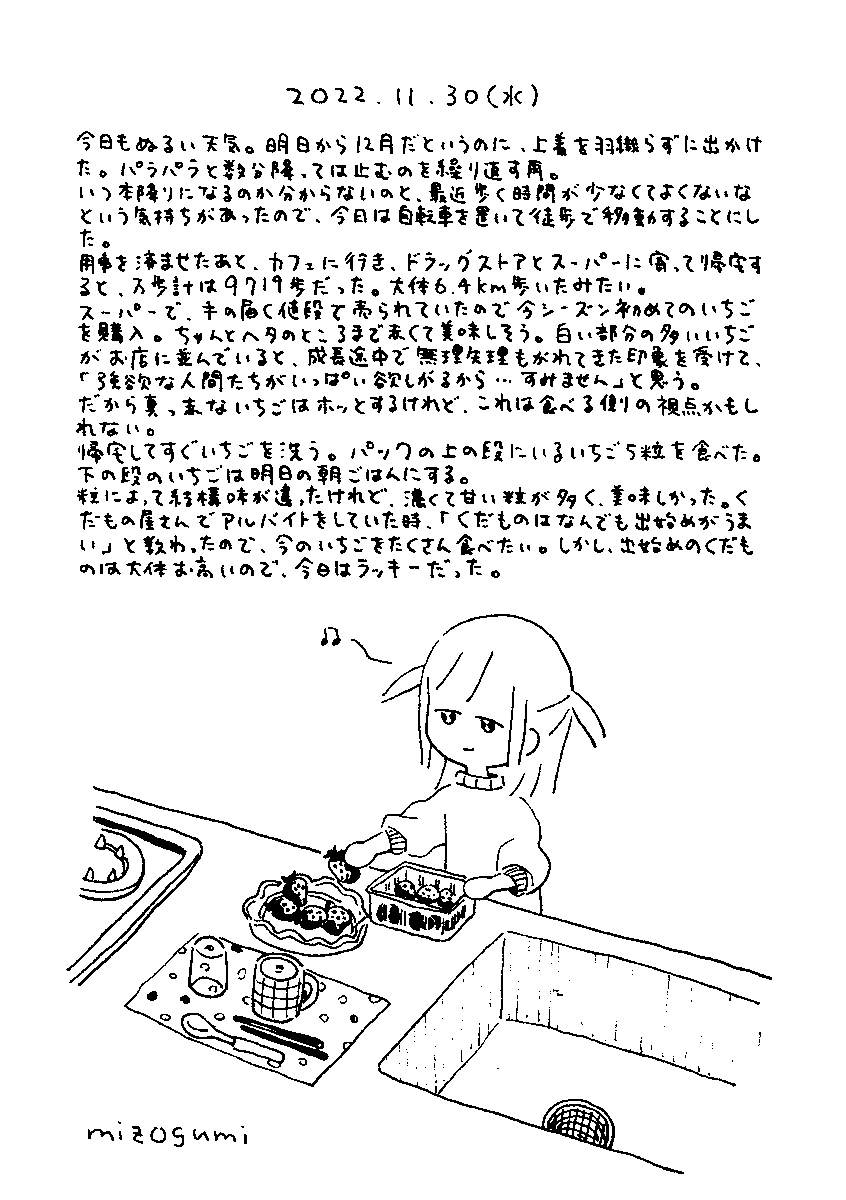 2022.11.30(水)
今日もぬるい天気。明日から12月だというのに、上着を羽織らずに出かけ
た。パラパラと数分降っては止むのを繰り返す雨。
いつ本降りになるのか分からないのと、最近歩く時間が少なくてよくないな
という気持ちがあったので、今日は自転車を置いて徒歩で移動することにし
た。
用事を済ませたあと、カフェに行き、ドラッグストアとスーパーに寄って帰宅す
ると、万歩計は9719歩だった。大体6.4km歩いたみたい。
スーパーで、手の届く値段で売られていたので今シーズン初めてのいちご
を購入。ちゃんとヘタのところまで赤くて美味しそう。白い部分の多いいちご
がお店に並んでいると、成長途中で無理矢理もがれてきた印象を受けて、
「強欲な人間たちがいっぱい欲しがるから…すみません」と思う。
だから真っ赤ないちごはホッとするけれど、これは食べる側の視点かもし
れない。
帰宅してすぐいちごを洗う。パックの上の段にいるいちご5粒を食べた。
下の段のいちごは明日の朝ごはんにする。
粒によって結構味が違ったけれど、濃くて甘い粒が多く、美味しかった。く
だもの屋さんでアルバイトをしていた時、「くだものはなんでも出始めがうま
い」と教わったので、今のいちごをたくさん食べたい。しかし、出始めのくだも
のは大体お高いので、今日はラッキーだった。
mizogumi